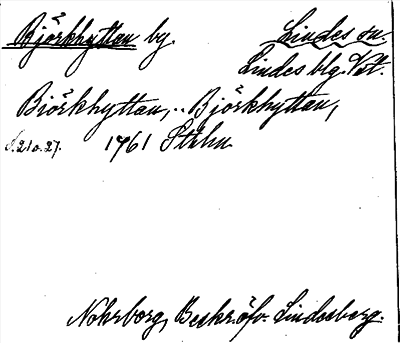 Björkhyttan by. Lindes sn.
Lindes blg. Vstl.
Biörkhyttan,.. Björkhyttan,
s. 21 o. 27. 1761 Sthlm
Nohrborg, Beskr. öfv. Lindesberg.